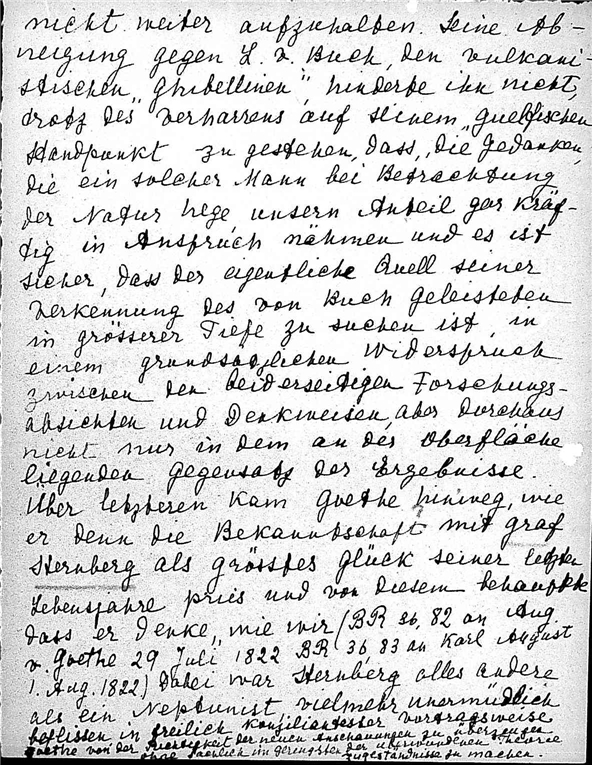 nicht weiter aufzuhalten. Seine Ab-
neigung gegen L. v. Buch, den vulkani-
stischen „Ghibellinen“ hinderte ihn nicht,
trotz des Verharrens auf seinem „guelfischen
Standpunkt zu gestehen, dass „die Gedanken,
die ein solcher Mann bei Betrachtung
der Natur hege unsern Anteil gar kräf-
tig in Anspruch nähmen und es ist
sicher, dass der eigentliche Quell seiner
Verkennung des von Buch geleisteten
in grösserer Tiefe zu suchen ist, in
einem grundsätzlichen Widerspruch
zwischen den beiderseitigen Forschungs-
absichten und Denkweisen, aber durchaus
nicht nur in dem an der Oberfläche
liegenden Gegensatz der Ergebnisse.
Über letzteren kam Goethe hinweg, wie
er denn die Bekanntschaft mit Graf
Sternberg als grösstes Glück seiner letzten
Lebensjahre pries und von diesem behauptete
dass er denke, wie wir (BR 36, 82 an Aug.
v. Goethe 29 Juli 1822 BR 36 83 an Karl August
1. Aug. 1822) Dabei war Sternberg alles andere
als ein Neptunist vielmehr unermüdlich
beflissen in freilich konziliantester Vortragsweise
Goethe von der Richtigkeit der neuen Anschauungen zu überzeugen
ohne sachlich im geringsten der überwundenen Theorie
Zugeständnisse zu machen.